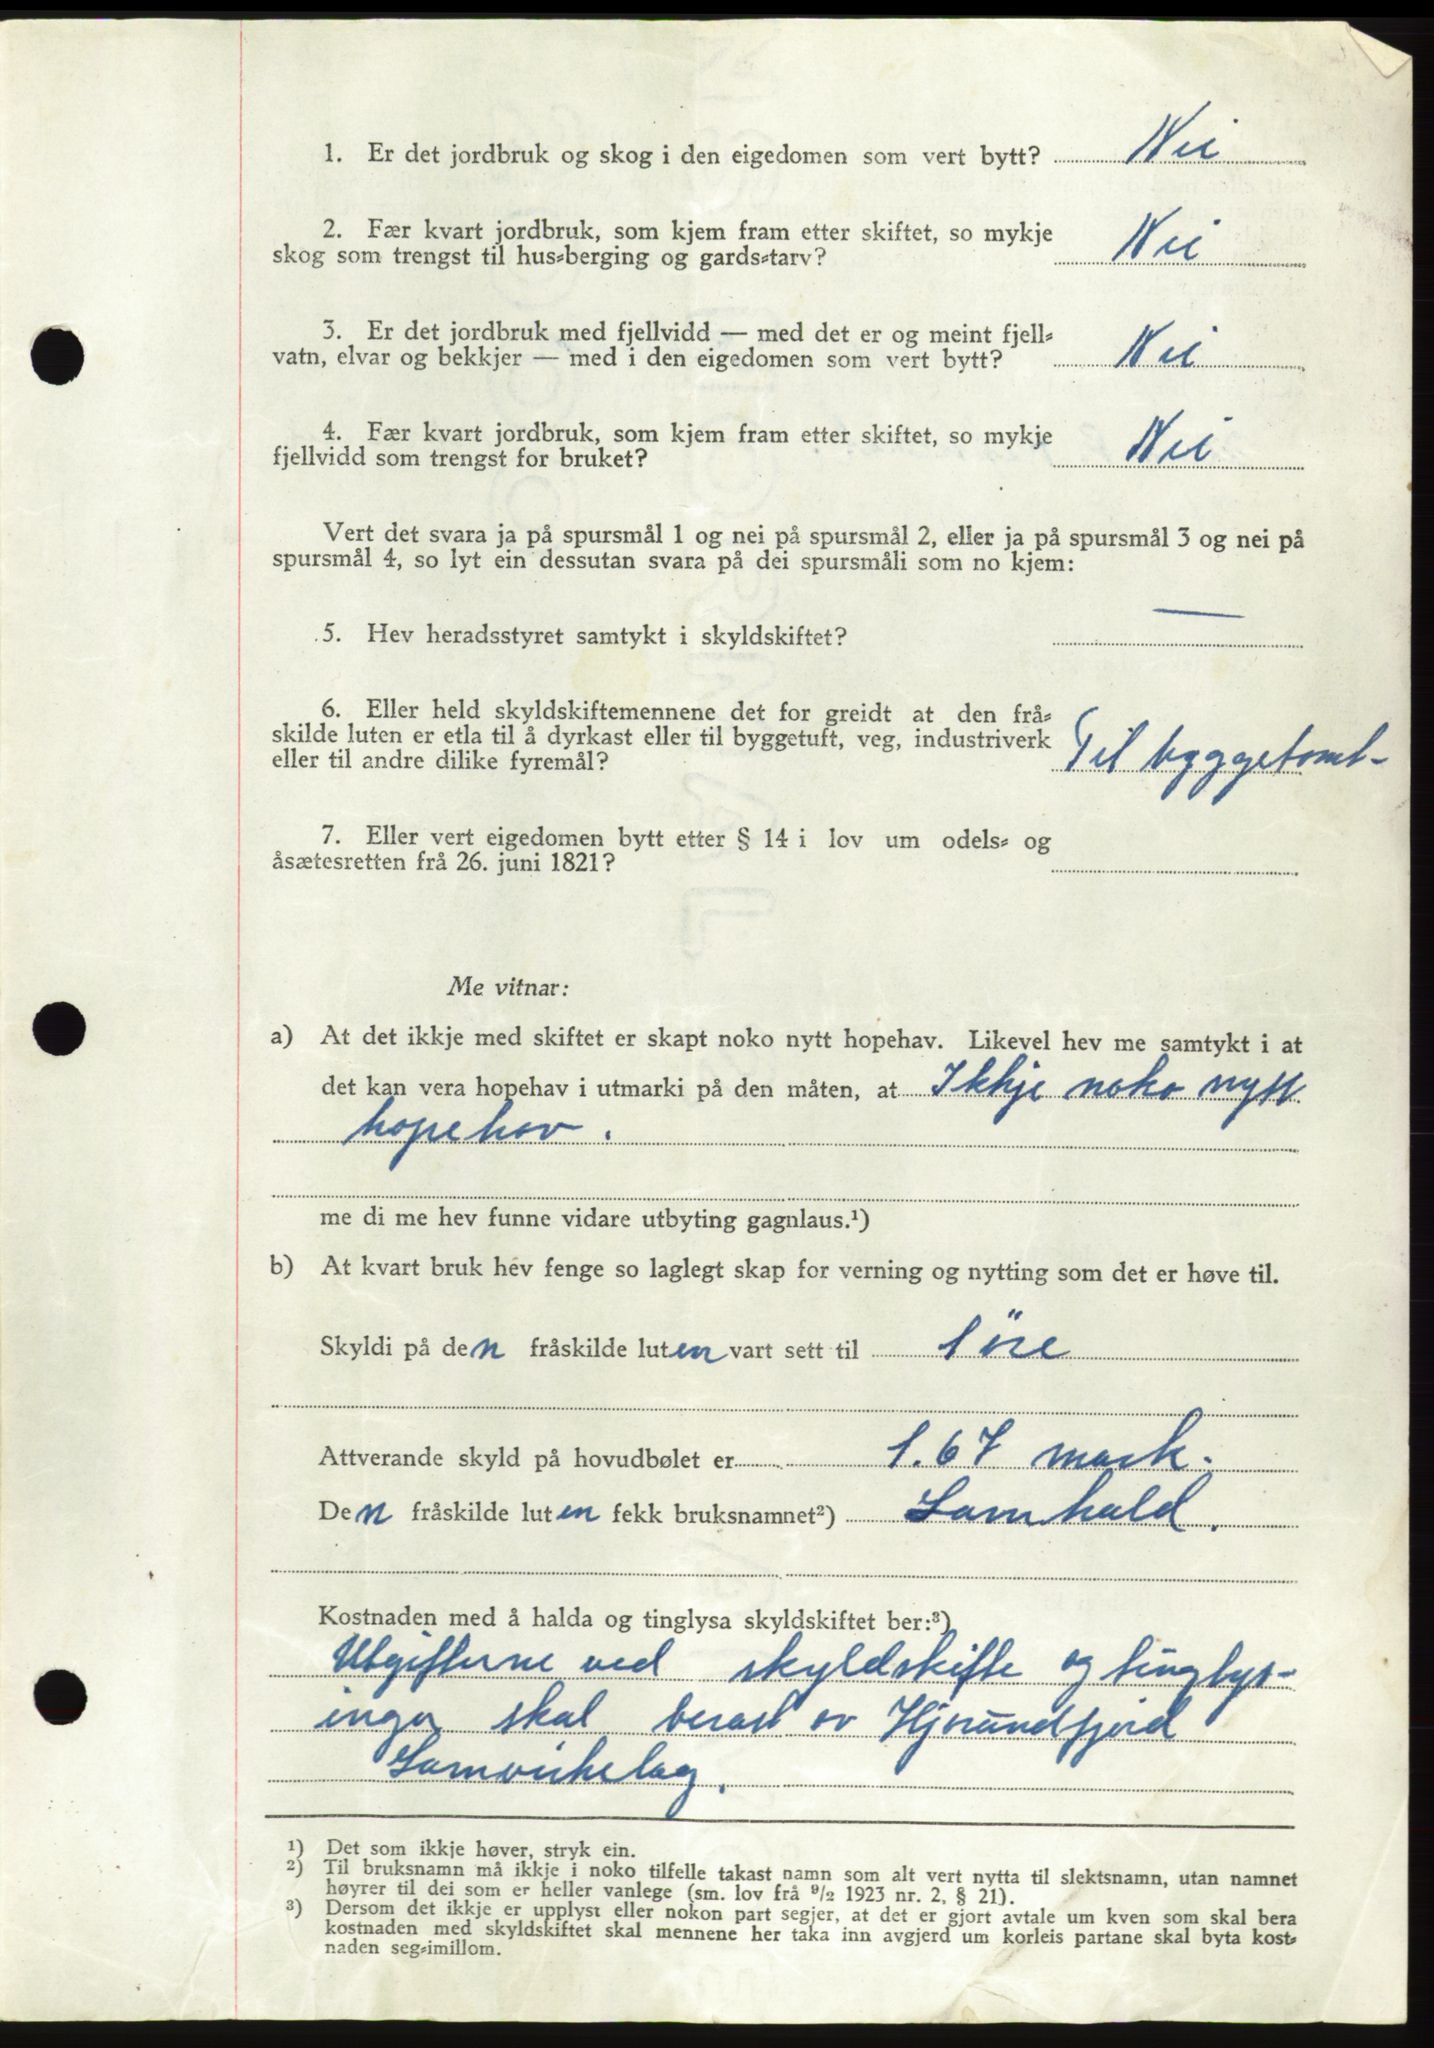 1. Er det jordbruk og skog i den eigedomen som vert bytt? Nei
2. Fær kvart jordbruk, som kjem fram etter skiftet, so mykje
skog som trengst til hus-berging og gards-tarv? Nei
3. Er det jordbruk med fjellvidd — med det er og meint fjell-
vatn, elvar og bekkjer — med i den eigedomen som vert bytt? Nei
4. Fær kvart jordbruk, som kjem fram etter skiftet, so mykje
fjellvidd som trengst for bruket? Nei
Vert det svara ja på spursmål 1 og nei på spursmål 2, eller ja på spursmål 3 og nei på
spursmål 4, so lyt ein dessutan svara på dei spursmåli som no kjem:
5. Hev heradsstyret samtykt i skyldskiftet? —
6. Eller held skyldskiftemennene det for greidt at den frå-
skilde luten er etla til å dyrkast eller til byggetuft, veg, industriverk
eller til andre dilike fyremål? Til byggetomt-
7. Eller vert eigedomen bytt etter § 14 i lov um odels- og
åsætesretten frå 26. juni 1821?
Me vitnar:
a) At det ikkje med skiftet er skapt noko nytt hopehav. Likevel hev me samtykt i at
det kan vera hopehav i utmarki på den måten, at Ikkje noko nytt
hopehav.
me di me hev funne vidare utbyting gagnlaus.¹)
b) At kvart bruk hev fenge so laglegt skap for verning og nytting som det er høve til.
Skyldi på den fråskilde luten vart sett til 1 öre
Attverande skyld på hovudbølet er 1.67 mark.
Den fråskilde luten fekk bruksnamnet²) Samhald.
Kostnaden med å halda og tinglysa skyldskiftet ber:³)
Utgifterne ved skyldskifte og tinglys-
inga skal berast av Hjørundfjord
Samvirkelag.
¹) Det som ikkje høver, stryk ein.
²) Til bruksnamn må ikkje i noko tilfelle takast namn som alt vert nytta til slektsnamn, utan namnet
høyrer til dei som er heller vanlege (sm. lov frå 9/2 1923 nr. 2, § 21).
³) Dersom det ikkje er upplyst eller nokon part segjer, at det er gjort avtale um kven som skal bera
kostnaden med skyldskiftet skal mennene her taka inn avgjerd um korleis partane skal byta kost-
naden seg-imillom.